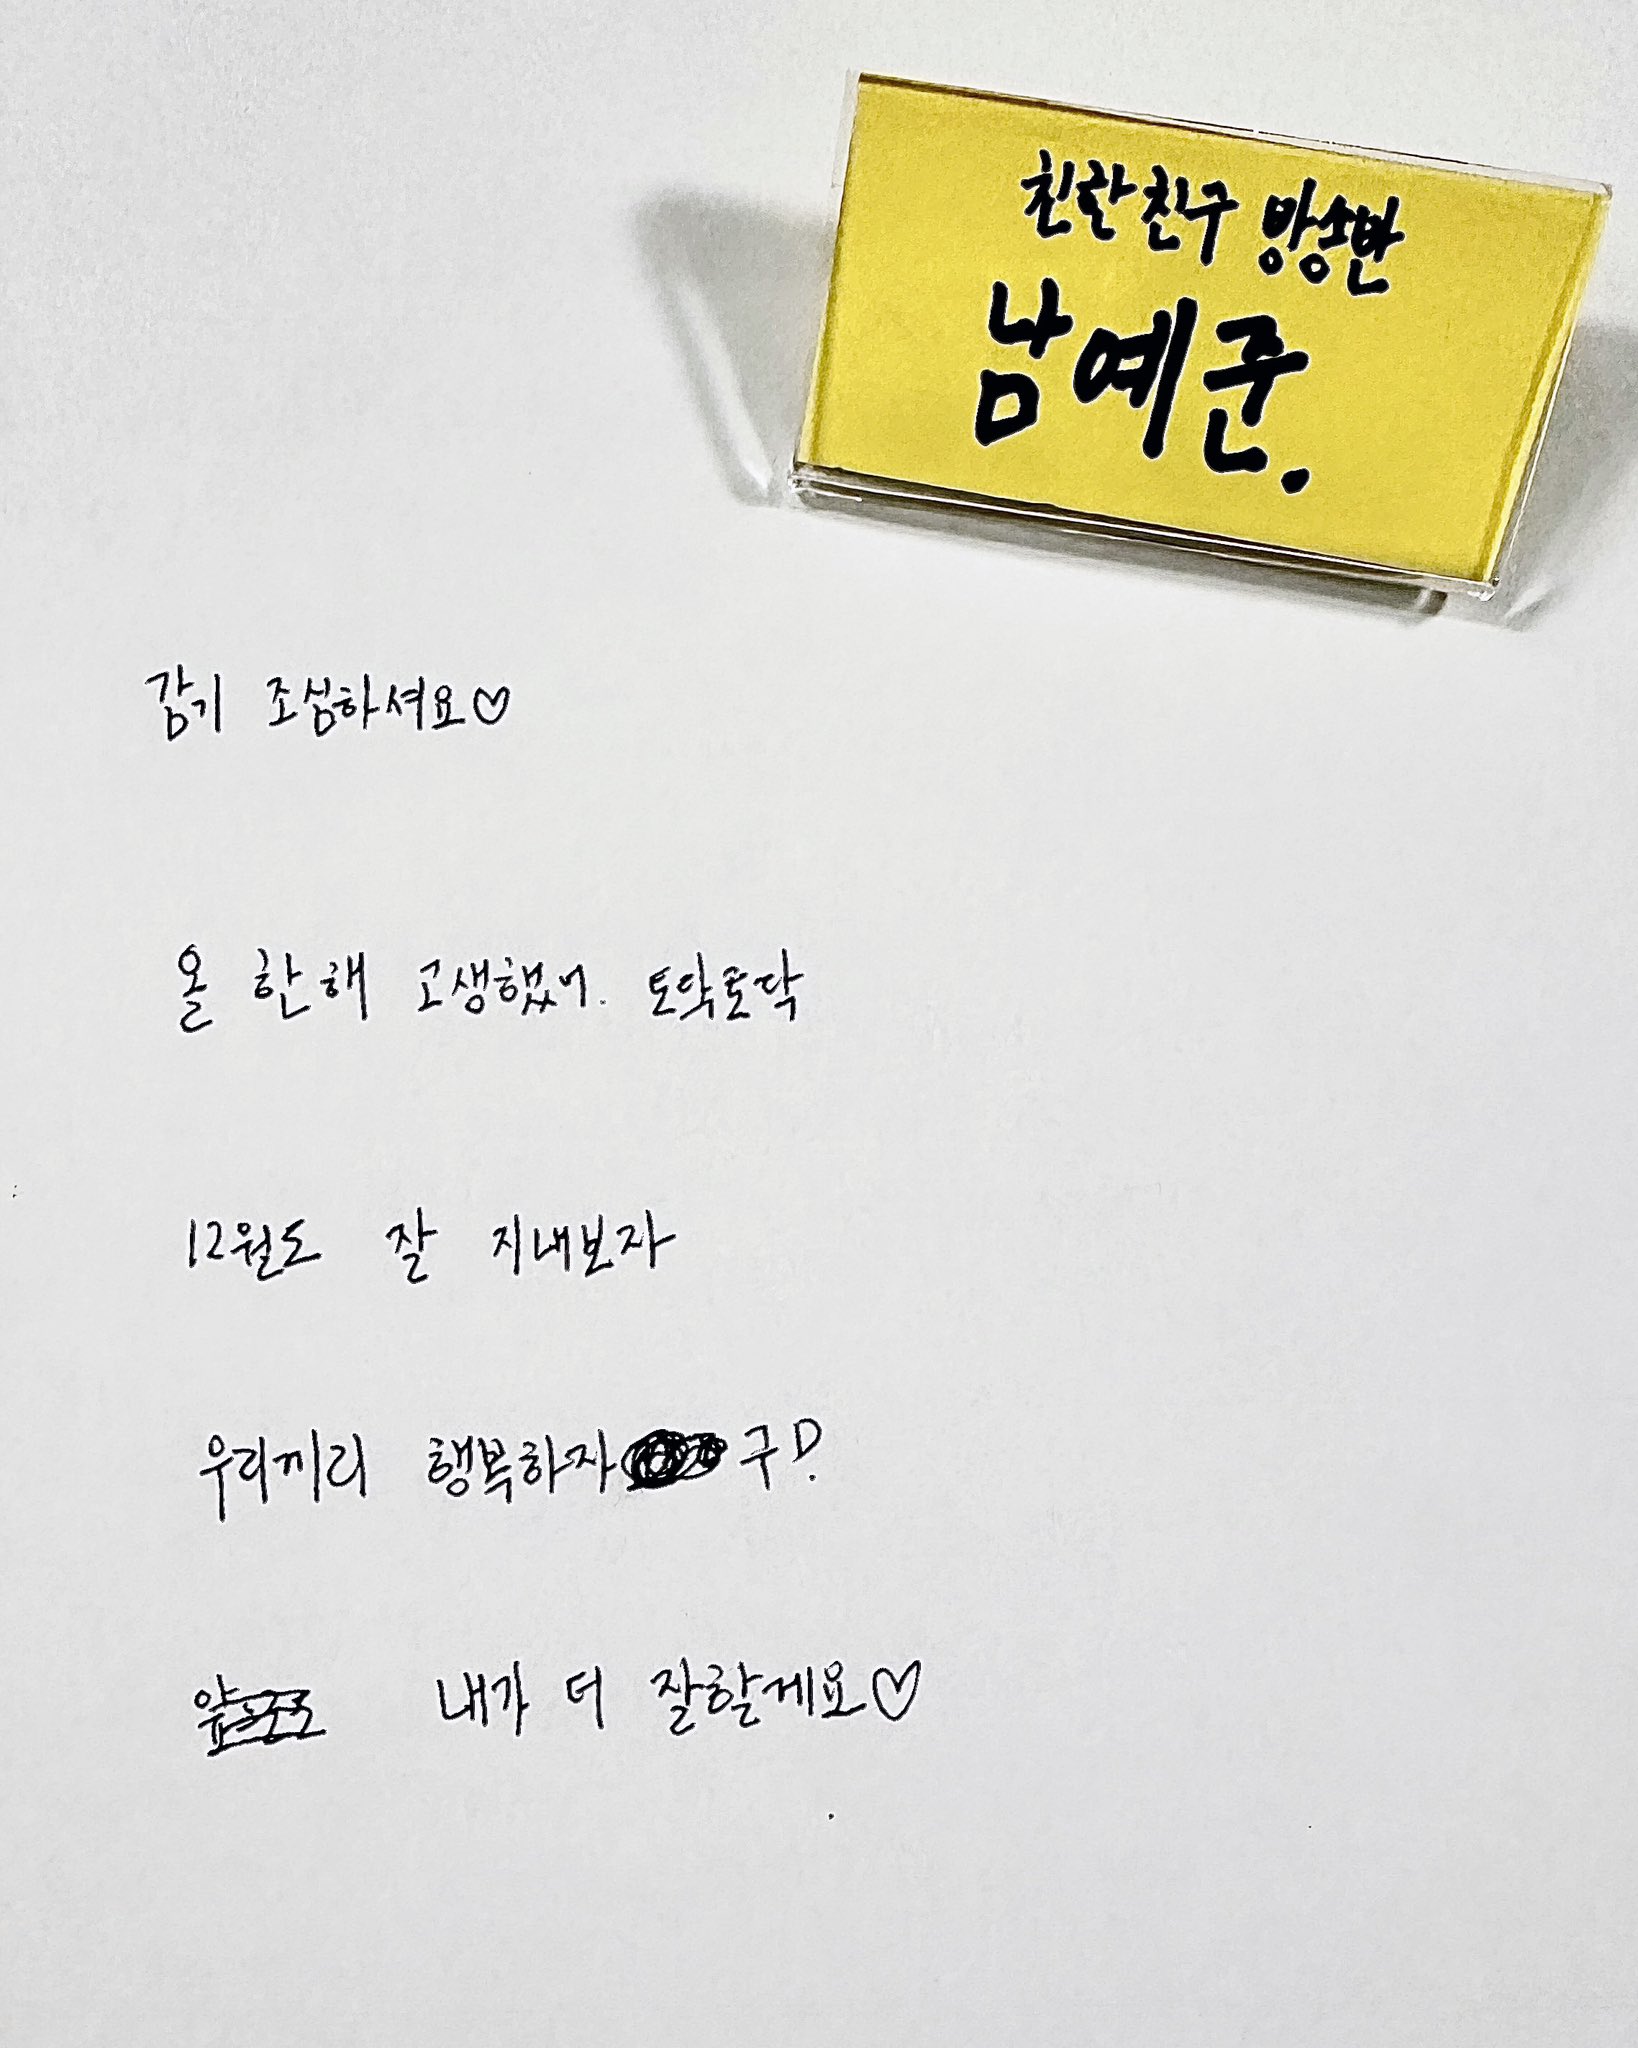 친한친구 방송반
남예준.
감기 조심하셔요♡
올 한해 고생했어. 토닥토닥
12월도 잘 지내보자
우리끼리 행복하자 구?
내가 더 잘할게요♡